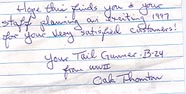 Hope this finds you & your
staff planning an exciting 1997
for your very satisfied customers!
Your Tail Gunner - B-24
from WWII
Oak Thornton